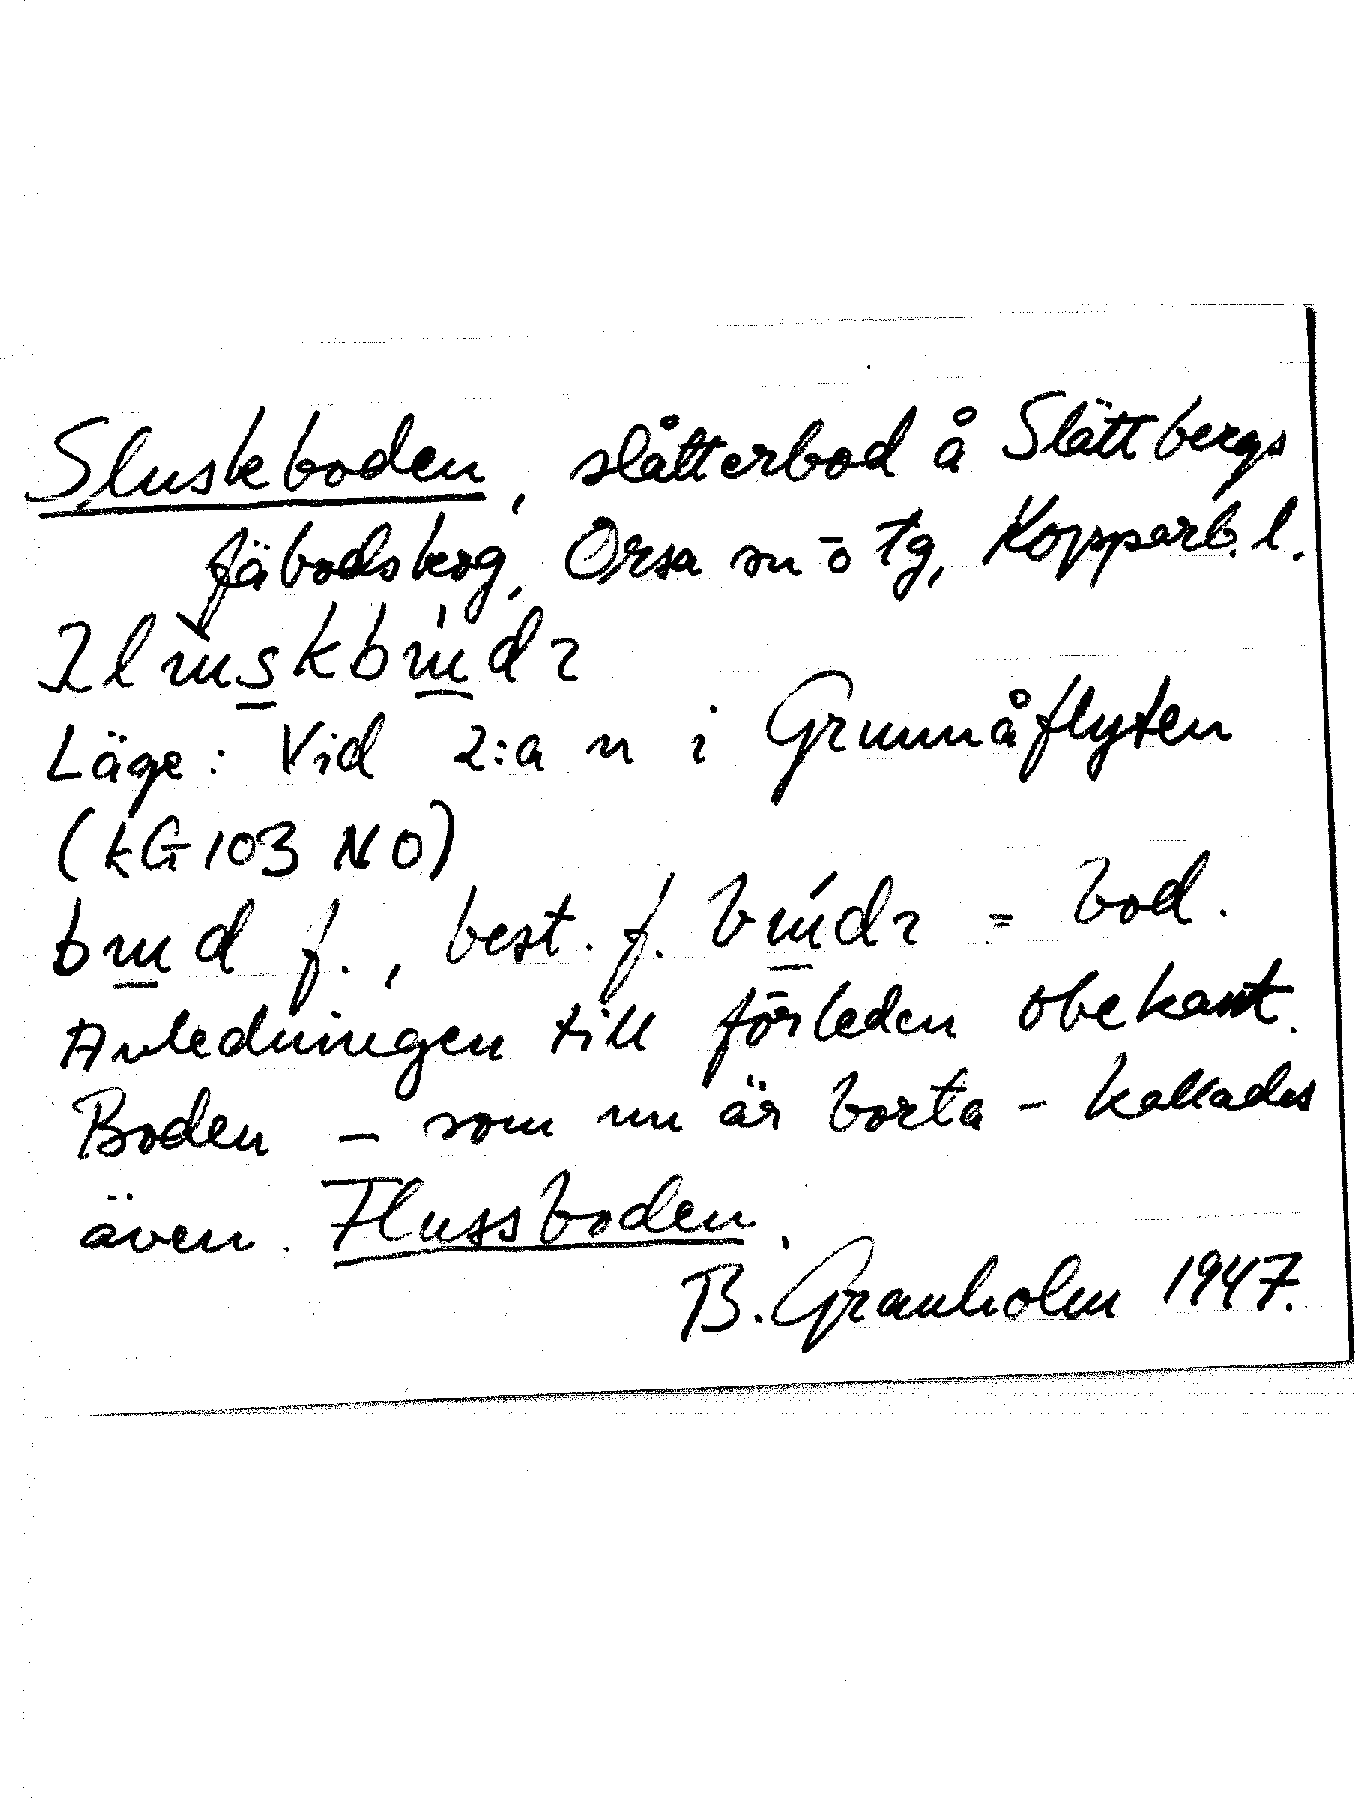 Sluskboden, slåtterbod å Slättbergs
fäbodskog, Orsa sn o tg, Kopparb. l.
Läge: Vid 2:a n i Grunnåflyten
(kG 103 NO)
f., best. f. = bod.
Anledningen till förleden obekant.
Boden – som nu är borta – kallades
även. Flussboden.
B. Granholm 1947.